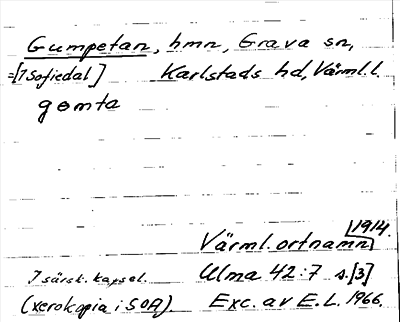 Gumpetan, hmn, Grava sn,
=[? Sofiedal] Karlstads hd, Värml. l.
gømta
1914.
Värml. ortnamn
I särsk. kapsel. Ulma 42:7 s. [3]
(xerokopia i SOA). Exc. av E.L. 1966.